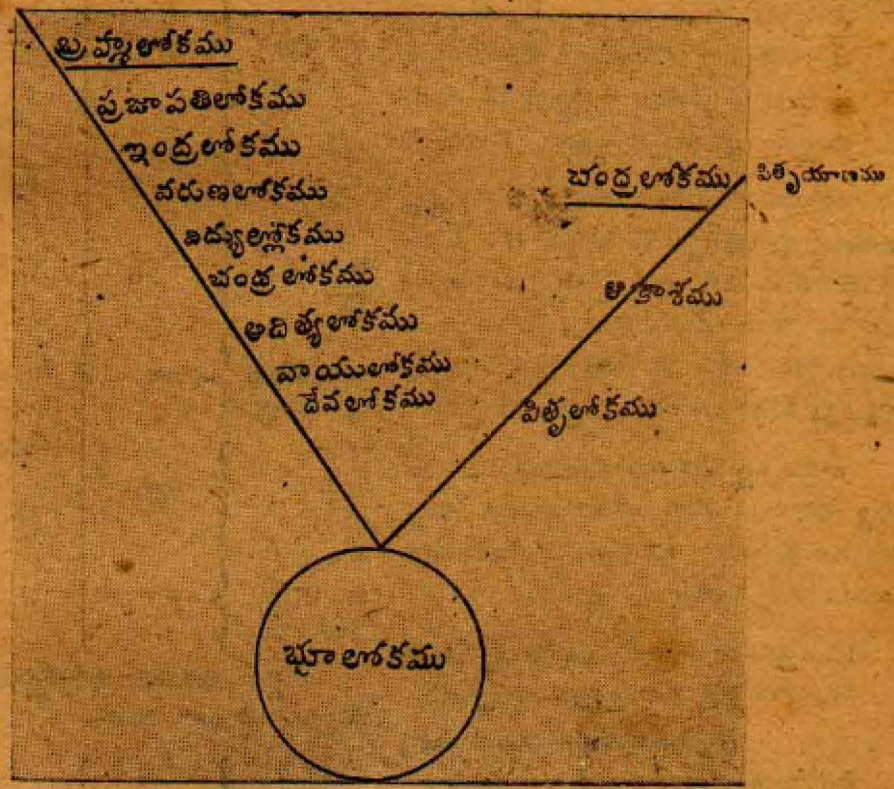 బ్రహ్మలోకము
ప్రజాపతిలోకము
ఇంద్రలోకము
వరుణలోకము
విద్యుల్లోకము
చంద్రలోకము
ఆదిత్యలోకము
వాయులోకము
దేవలోకము
చంద్రలోకము
పితృయాణము
ఆకాశము
పితృలోకము
భూలోకము